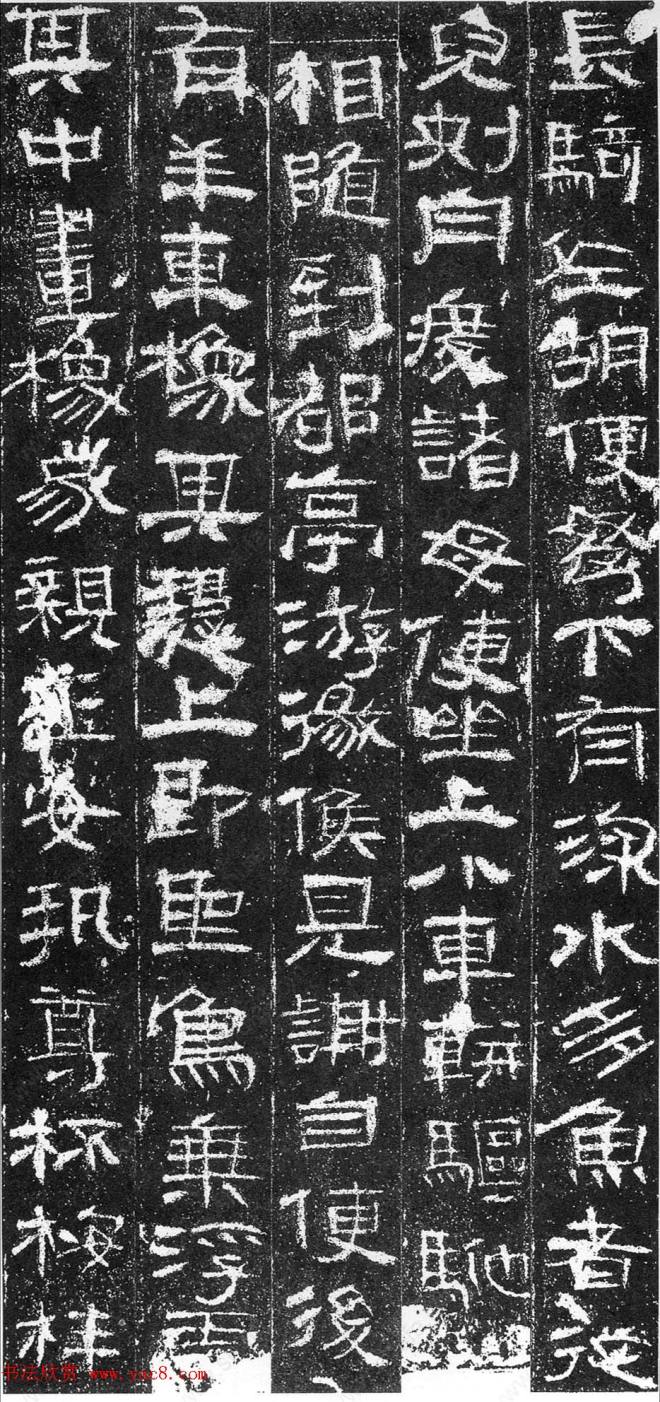 長騎左胡使弩下有流水多魚者從
兒刺舟度諸母使坐上小車軿驅馳
相隨到都亭游徼候見謝自便後
有羊車橡其𨍥上即聖鳥乘浮雲
其中畫橡家親玉女執尊杯桉柈
书法欣赏 www.yac8.com